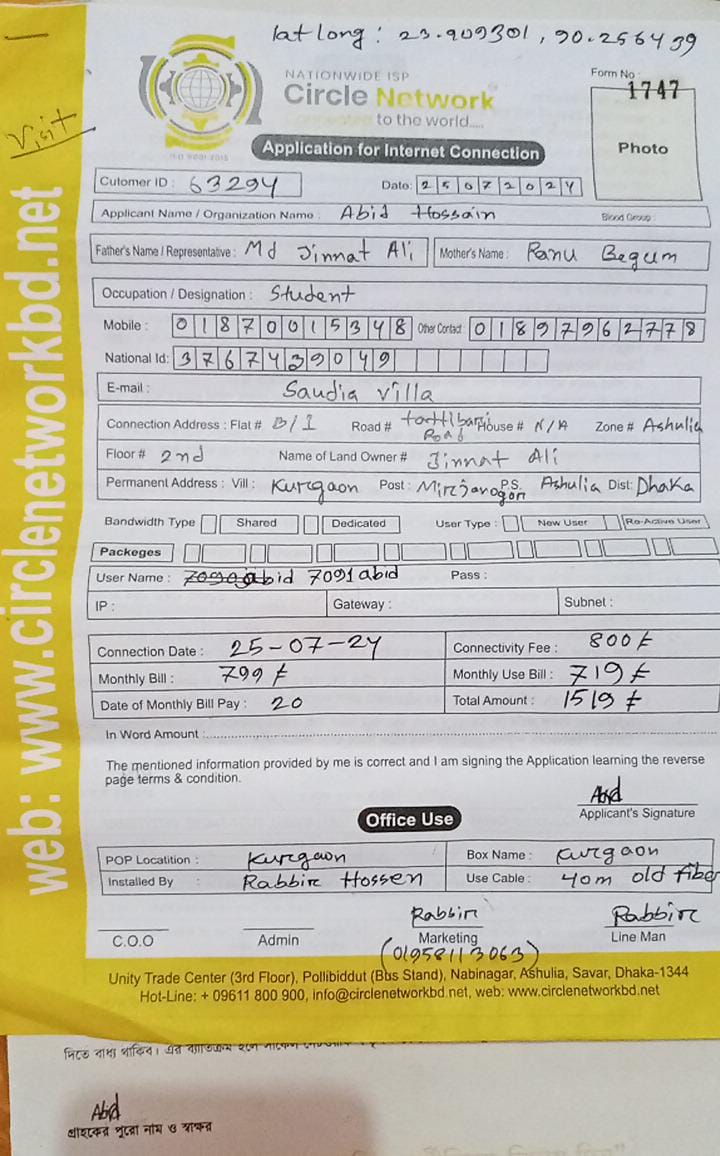 lat long : 23.909301, 90.256439
Visit
NATIONWIDE ISP
Circle Network
Connected to the world.....
ISO 9001:2015
Form No :
1747
Photo
Application for Internet Connection
Cutomer ID : 63294 Date: 25072024
Applicant Name / Organization Name : Abid Hossain Blood Group :
Father's Name / Representative : Md Jinnat Ali Mother's Name : Ranu Begum
Occupation / Designation : Student
Mobile : 01870015348 Other Contact : 01897962778
National Id: 3767439049
E-mail : Saudia villa
Connection Address : Flat # B/1 Road # Road House # N/A Zone # Ashulia
Floor # 2nd Name of Land Owner # Jinnat Ali
Permanent Address : Vill : Kurgaon Post : P.S. Ashulia Dist: Dhaka
Bandwidth Type Shared Dedicated User Type : New User Re-Active User
Packeges
User Name : 7091abid Pass :
IP : Gateway : Subnet :
Connection Date : 25-07-24 Connectivity Fee : 800৳
Monthly Bill : 799৳ Monthly Use Bill : 719৳
Date of Monthly Bill Pay : 20 Total Amount : 1519৳
In Word Amount :
The mentioned information provided by me is correct and I am signing the Application learning the reverse
page terms & condition.
Abid
Applicant's Signature
Office Use
POP Locatition : Kurgaon Box Name : Kurgaon
Installed By : Rabbir Hossen Use Cable : 40m old fiber
Rabbir Rabbir
C.O.O Admin Marketing Line Man
(01958113063)
Unity Trade Center (3rd Floor), Pollibiddut (Bus Stand), Nabinagar, Ashulia, Savar, Dhaka-1344
Hot-Line: + 09611 800 900, info@circlenetworkbd.net, web: www.circlenetworkbd.net
web: www.circlenetworkbd.net
দিতে বাধ্য থাকিব। এর ব্যতিক্রম হলে
Abid
গ্রাহকের পুরো নাম ও স্বাক্ষর